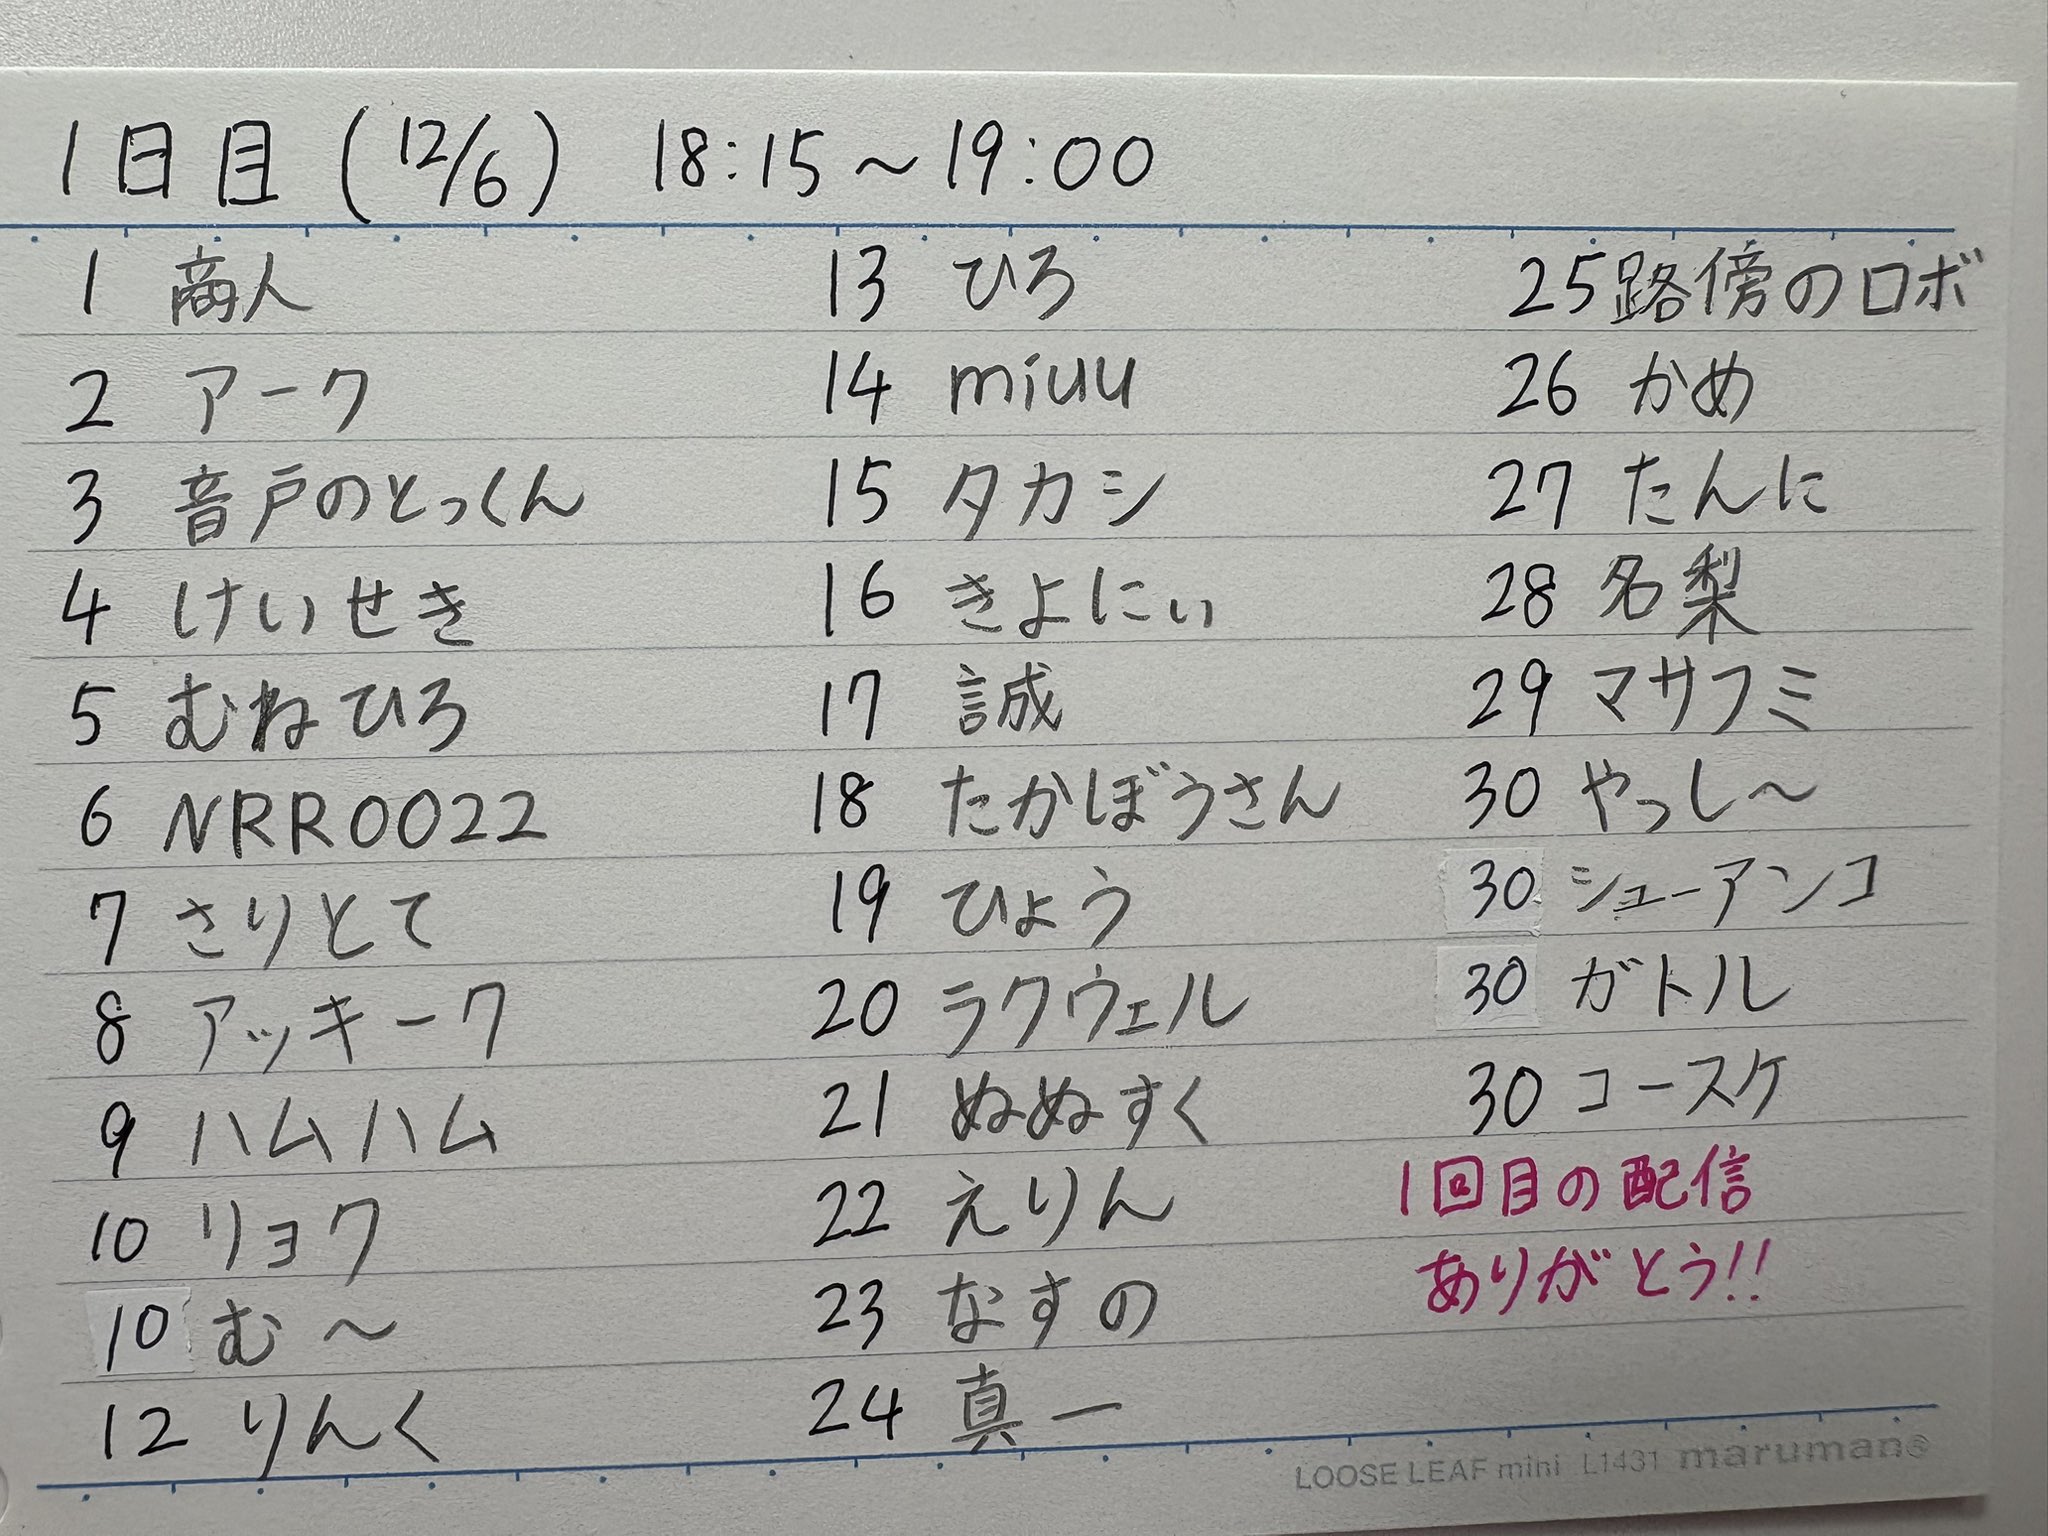 1日目(12/6) 18:15～19:00
1 商人
2 アーク
3 音戸のとっくん
4 けいせき
5 むねひろ
6 NRR0022
7 さりとて
8 アッキーク
9 ハムハム
10 リョウ
10 む～
12 りんく
13 ひろ
14 miuu
15 タカシ
16 きよにぃ
17 誠
18 たかぼうさん
19 ひょう
20 ラクウェル
21 ぬぬすく
22 えりん
23 なすの
24 真一
25 路傍のロボ
26 かめ
27 たんに
28 名梨
29 マサフミ
30 やっし～
30 シューアンコ
30 ガトル
30 コースケ
1回目の配信
ありがとう!!
LOOSE LEAF mini L1431 maruman®